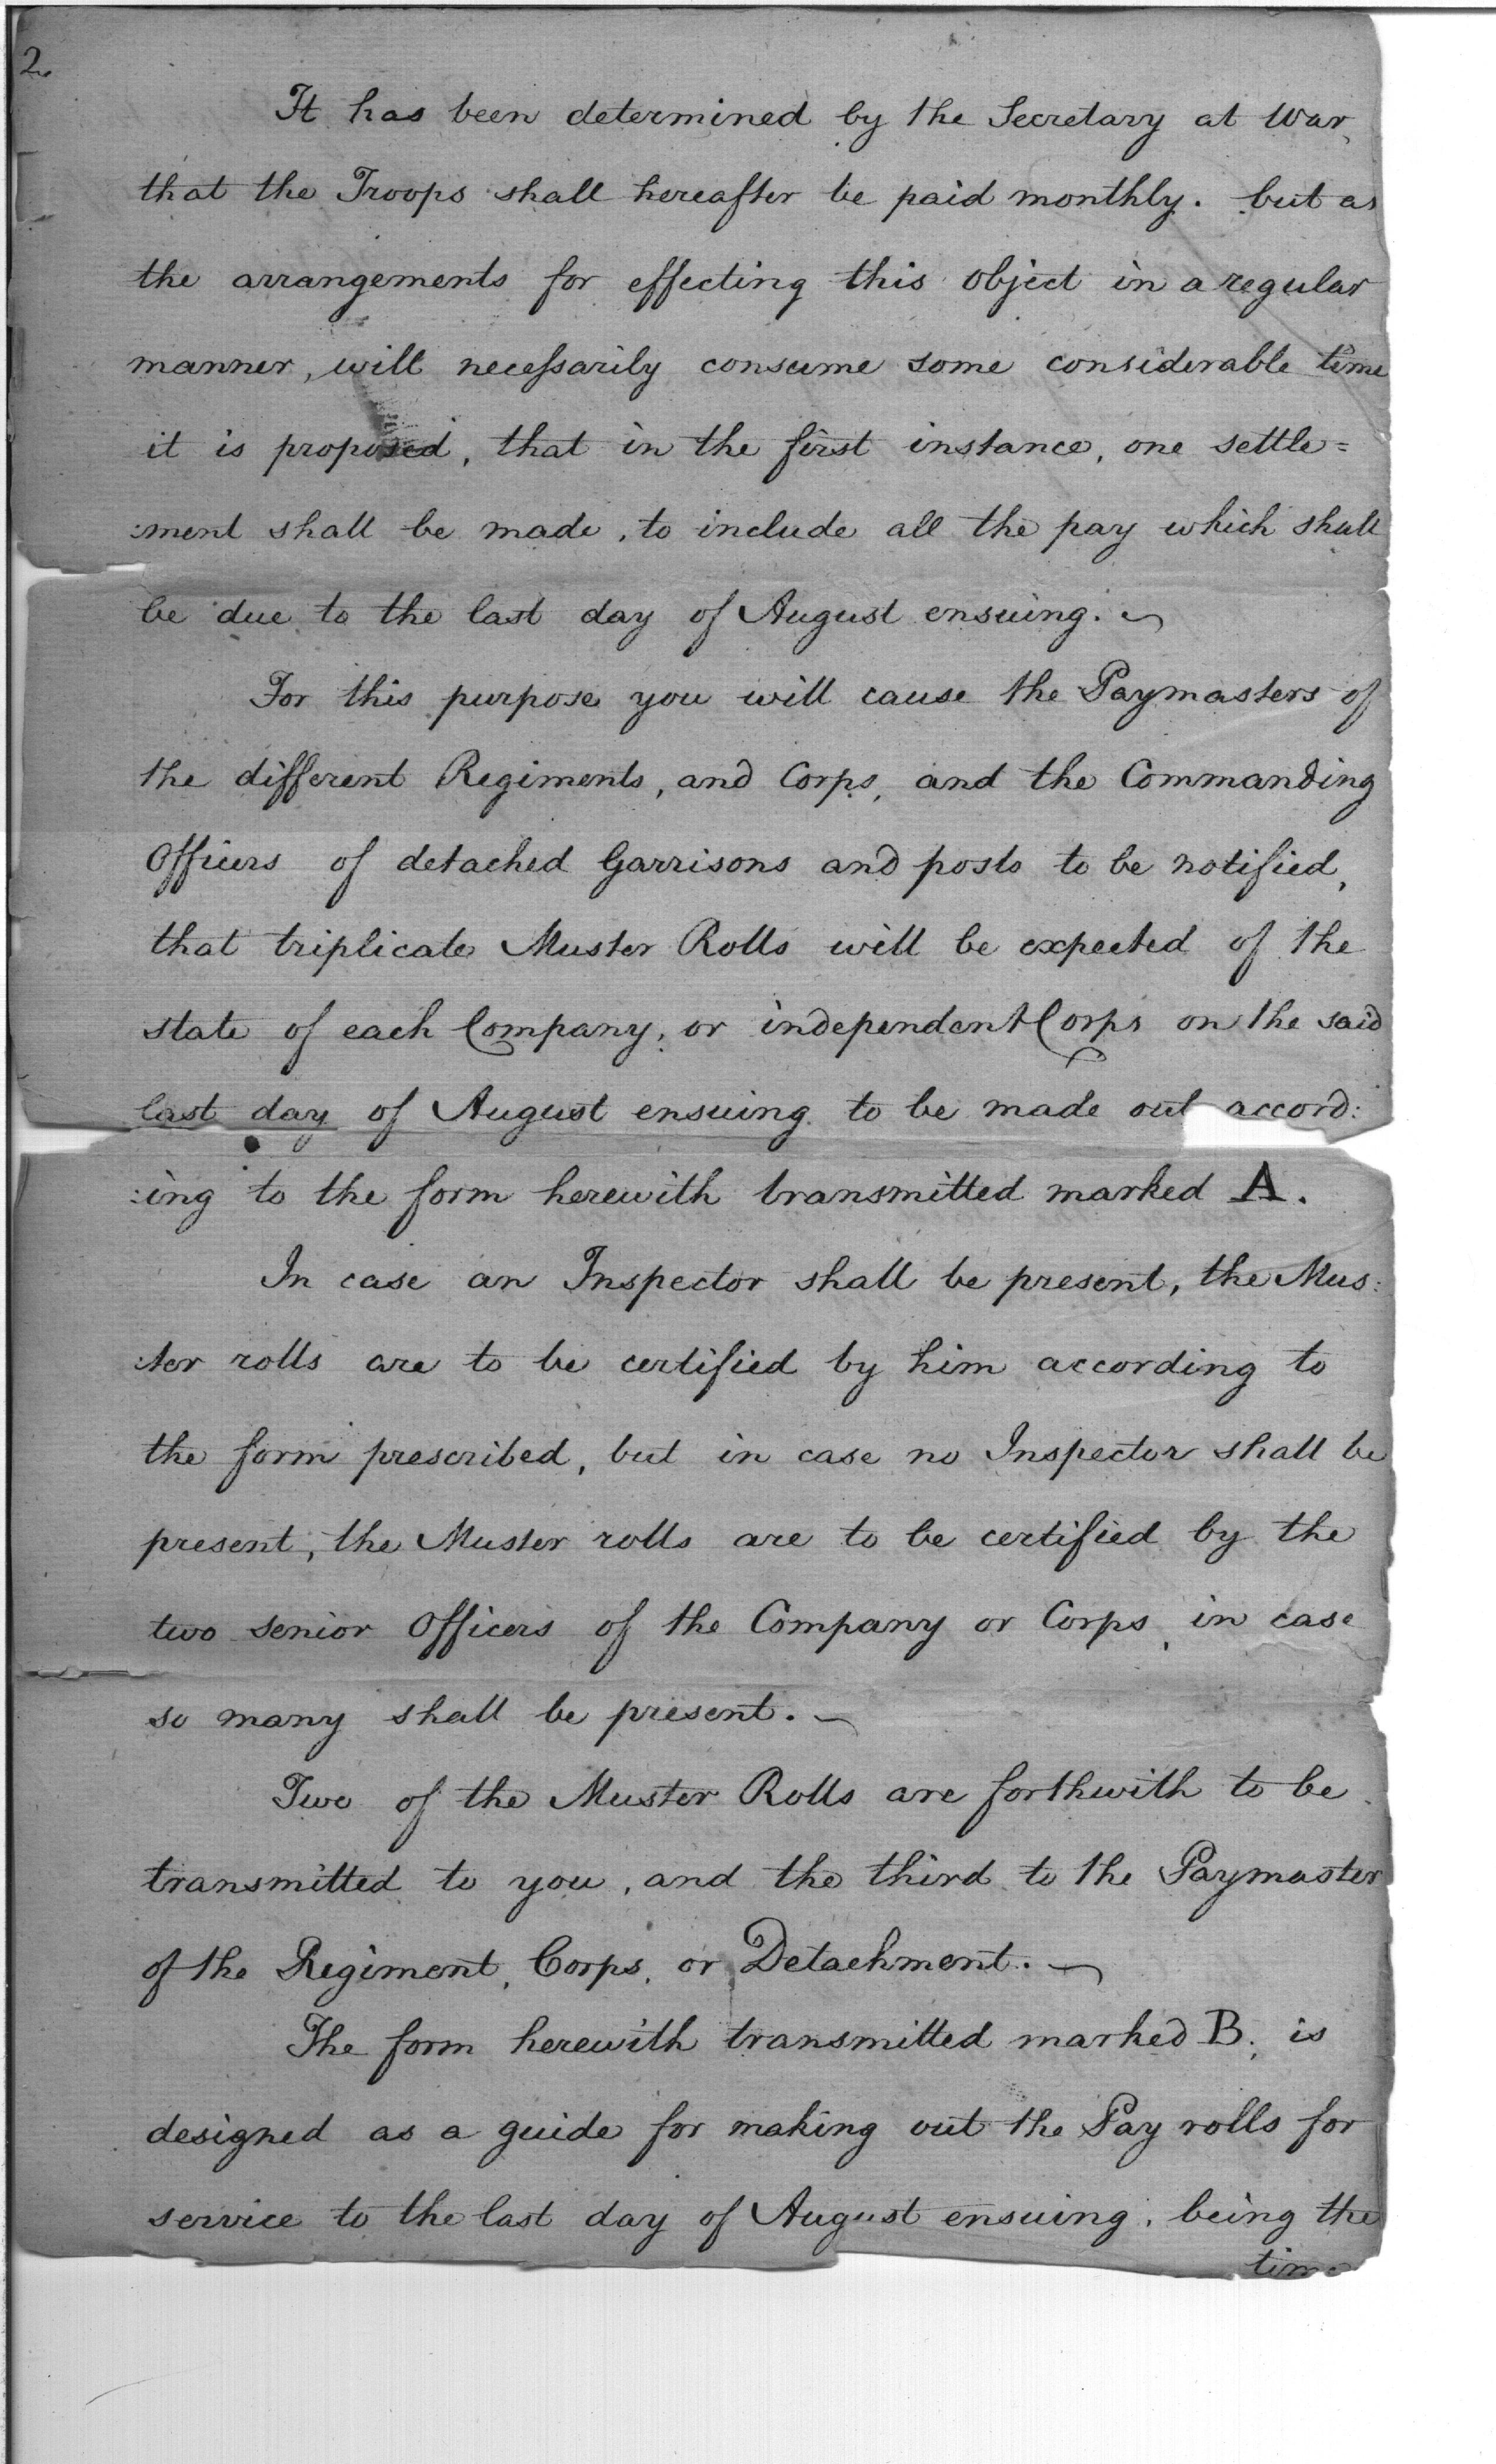 2.
It has been determined by the Secretary at War,
that the Troops shall hereafter be paid monthly. but as
the arrangements for effecting this object in a regular
manner, will necessarily consume some considerable time
it is proposed, that in the first instance, one settle=
:ment shall be made, to include all the pay which shall
be due to the last day of August ensuing.
For this purpose you will cause the Paymasters of
the different Regiments, and Corps, and the Commanding
Officers of detached Garrisons and posts to be notified,
that triplicate Muster Rolls will be expected of the
state of each Company, or independent Corps on the said
last day of August ensuing to be made out accord:
:ing to the form herewith transmitted marked A.
In case an Inspector shall be present, the Mus:
:ter rolls are to be certified by him according to
the form prescribed, but in case no Inspector shall be
present, the Muster rolls are to be certified by the
two senior Officers of the Company or Corps, in case
so many shall be present.
Two of the Muster Rolls are forthwith to be
transmitted to you, and the third to the Paymaster
of the Regiment, Corps, or Detachment.
The form herewith transmitted marked B, is
designed as a guide for making out the Pay rolls for
service to the last day of August ensuing, being the
time